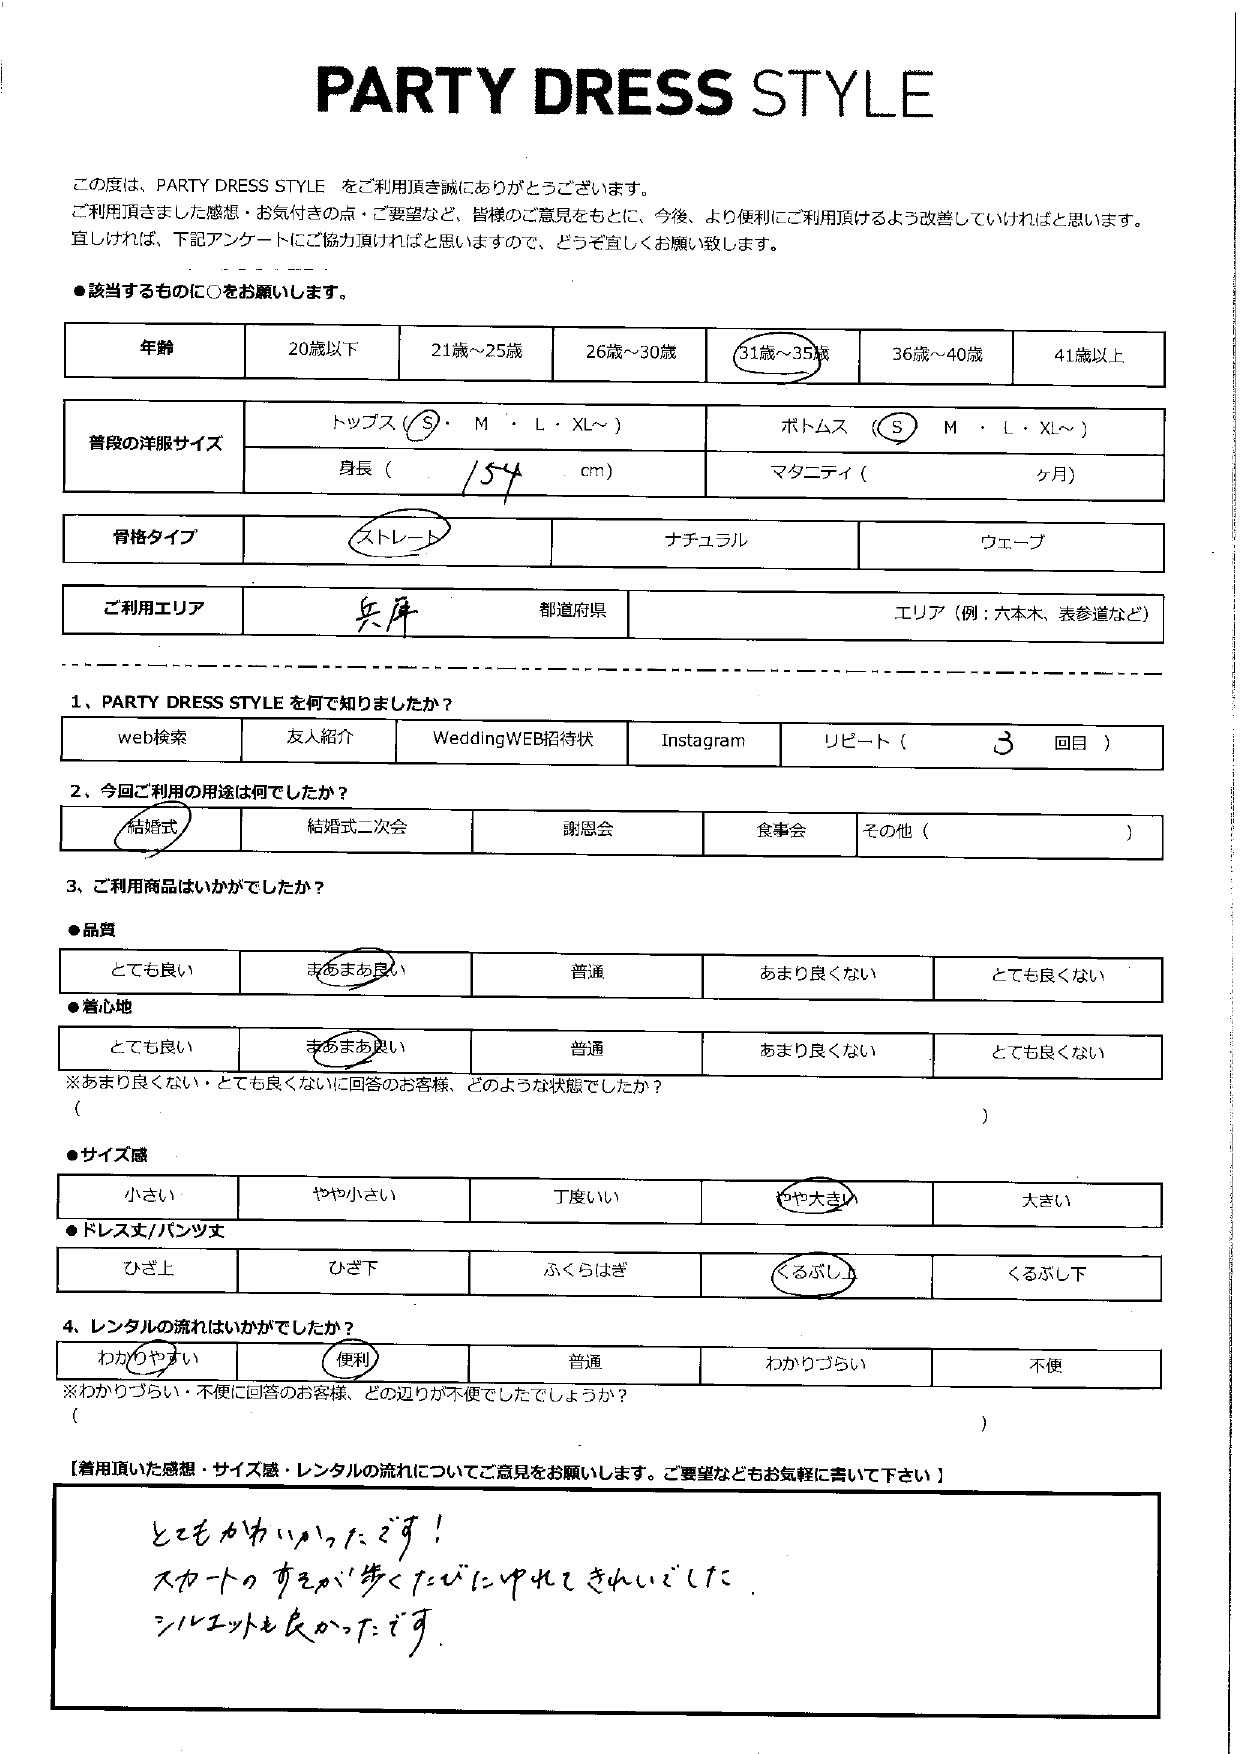 PARTY DRESS STYLE
この度は、PARTY DRESS STYLE をご利用頂き誠にありがとうございます。
ご利用頂きました感想・お気付きの点・ご要望など、皆様のご意見をもとに、今後、より便利にご利用頂けるよう改善していければと思います。
宜しければ、下記アンケートにご協力頂ければと思いますので、どうぞ宜しくお願い致します。
●該当するものに○をお願いします。
年齢 20歳以下 21歳～25歳 26歳～30歳 31歳～35歳 36歳～40歳 41歳以上
普段の洋服サイズ
トップス ( S ・ M ・ L ・ XL～ ) ボトムス ( S M ・ L ・ XL～ )
身長 ( 154 cm) マタニティ ( ヶ月)
骨格タイプ ストレート ナチュラル ウェーブ
ご利用エリア 兵庫 都道府県 エリア（例：六本木、表参道など）
1、PARTY DRESS STYLE を何で知りましたか？
web検索 友人紹介 WeddingWEB招待状 Instagram リピート ( 3 回目 )
2、今回ご利用の用途は何でしたか？
結婚式 結婚式二次会 謝恩会 食事会 その他 ( )
3、ご利用商品はいかがでしたか？
●品質
とても良い まあまあ良い 普通 あまり良くない とても良くない
●着心地
とても良い まあまあ良い 普通 あまり良くない とても良くない
※あまり良くない・とても良くないに回答のお客様、どのような状態でしたか？
( )
●サイズ感
小さい やや小さい 丁度いい やや大きい 大きい
●ドレス丈/パンツ丈
ひざ上 ひざ下 ふくらはぎ くるぶし上 くるぶし下
4、レンタルの流れはいかがでしたか？
わかりやすい 便利 普通 わかりづらい 不便
※わかりづらい・不便に回答のお客様、どの辺りが不便でしたでしょうか？
( )
【着用頂いた感想・サイズ感・レンタルの流れについてご意見をお願いします。ご要望などもお気軽に書いて下さい】
とてもかわいかったです！
スカートのすそが歩くたびにゆれてきれいでした.
シルエットも良かったです.